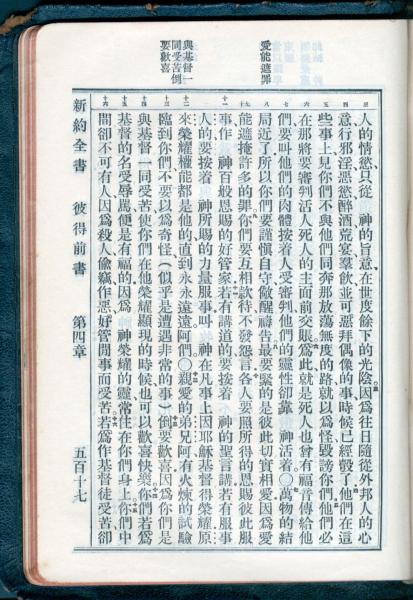 愛能遮罪
與基督一
同受苦倒
要歡喜
人的情慾只從　神的旨意在世度餘下的光陰因爲往日隨從外邦人的心
意行邪淫惡慾醉酒荒宴羣飲並可惡拜偶像的事時候已經彀了他們在這
些事上見你們不與他們同奔那放蕩無度的路就以爲怪毀謗你們他們必
在那將要審判活人死人的主面前交賬爲此就是死人也曾有福音傳給他
們要叫他們的肉體按着人受審判他們的靈性卻靠　神活着○萬物的結
局近了所以你們要謹愼自守儆醒禱告最要緊的是彼此切實相愛因爲愛
能遮掩許多的罪你們要互相款待不發怨言各人要照所得的恩賜彼此服
事作　神百般恩賜的好管家若有講道的要按着　神的聖言講若有服事
人的要按着　神所賜的力量服事叫　神在凡事上因耶穌基督得榮耀原
來榮耀權能都是他的直到永永遠遠阿們○親愛的弟兄阿有火煉的試驗
臨到你們不要以爲奇怪（似乎是遭遇非常的事）倒要歡喜因爲你們是
與基督一同受苦使你們在他榮耀顯現的時候也可以歡喜快樂你們若爲
基督的名受辱罵便是有福的因爲　神榮耀的靈常住在你們身上你們中
間卻不可有人因爲殺人偷竊作惡好管閒事而受苦若爲作基督徒受苦卻
新約全書　彼得前書　第四章　五百十七